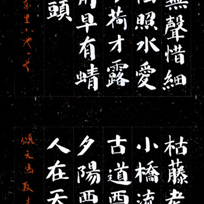 無聲惜細
照水愛
荷才露
早有蜻
頭
枯藤老
小橋流
古道西
夕陽西
人在天